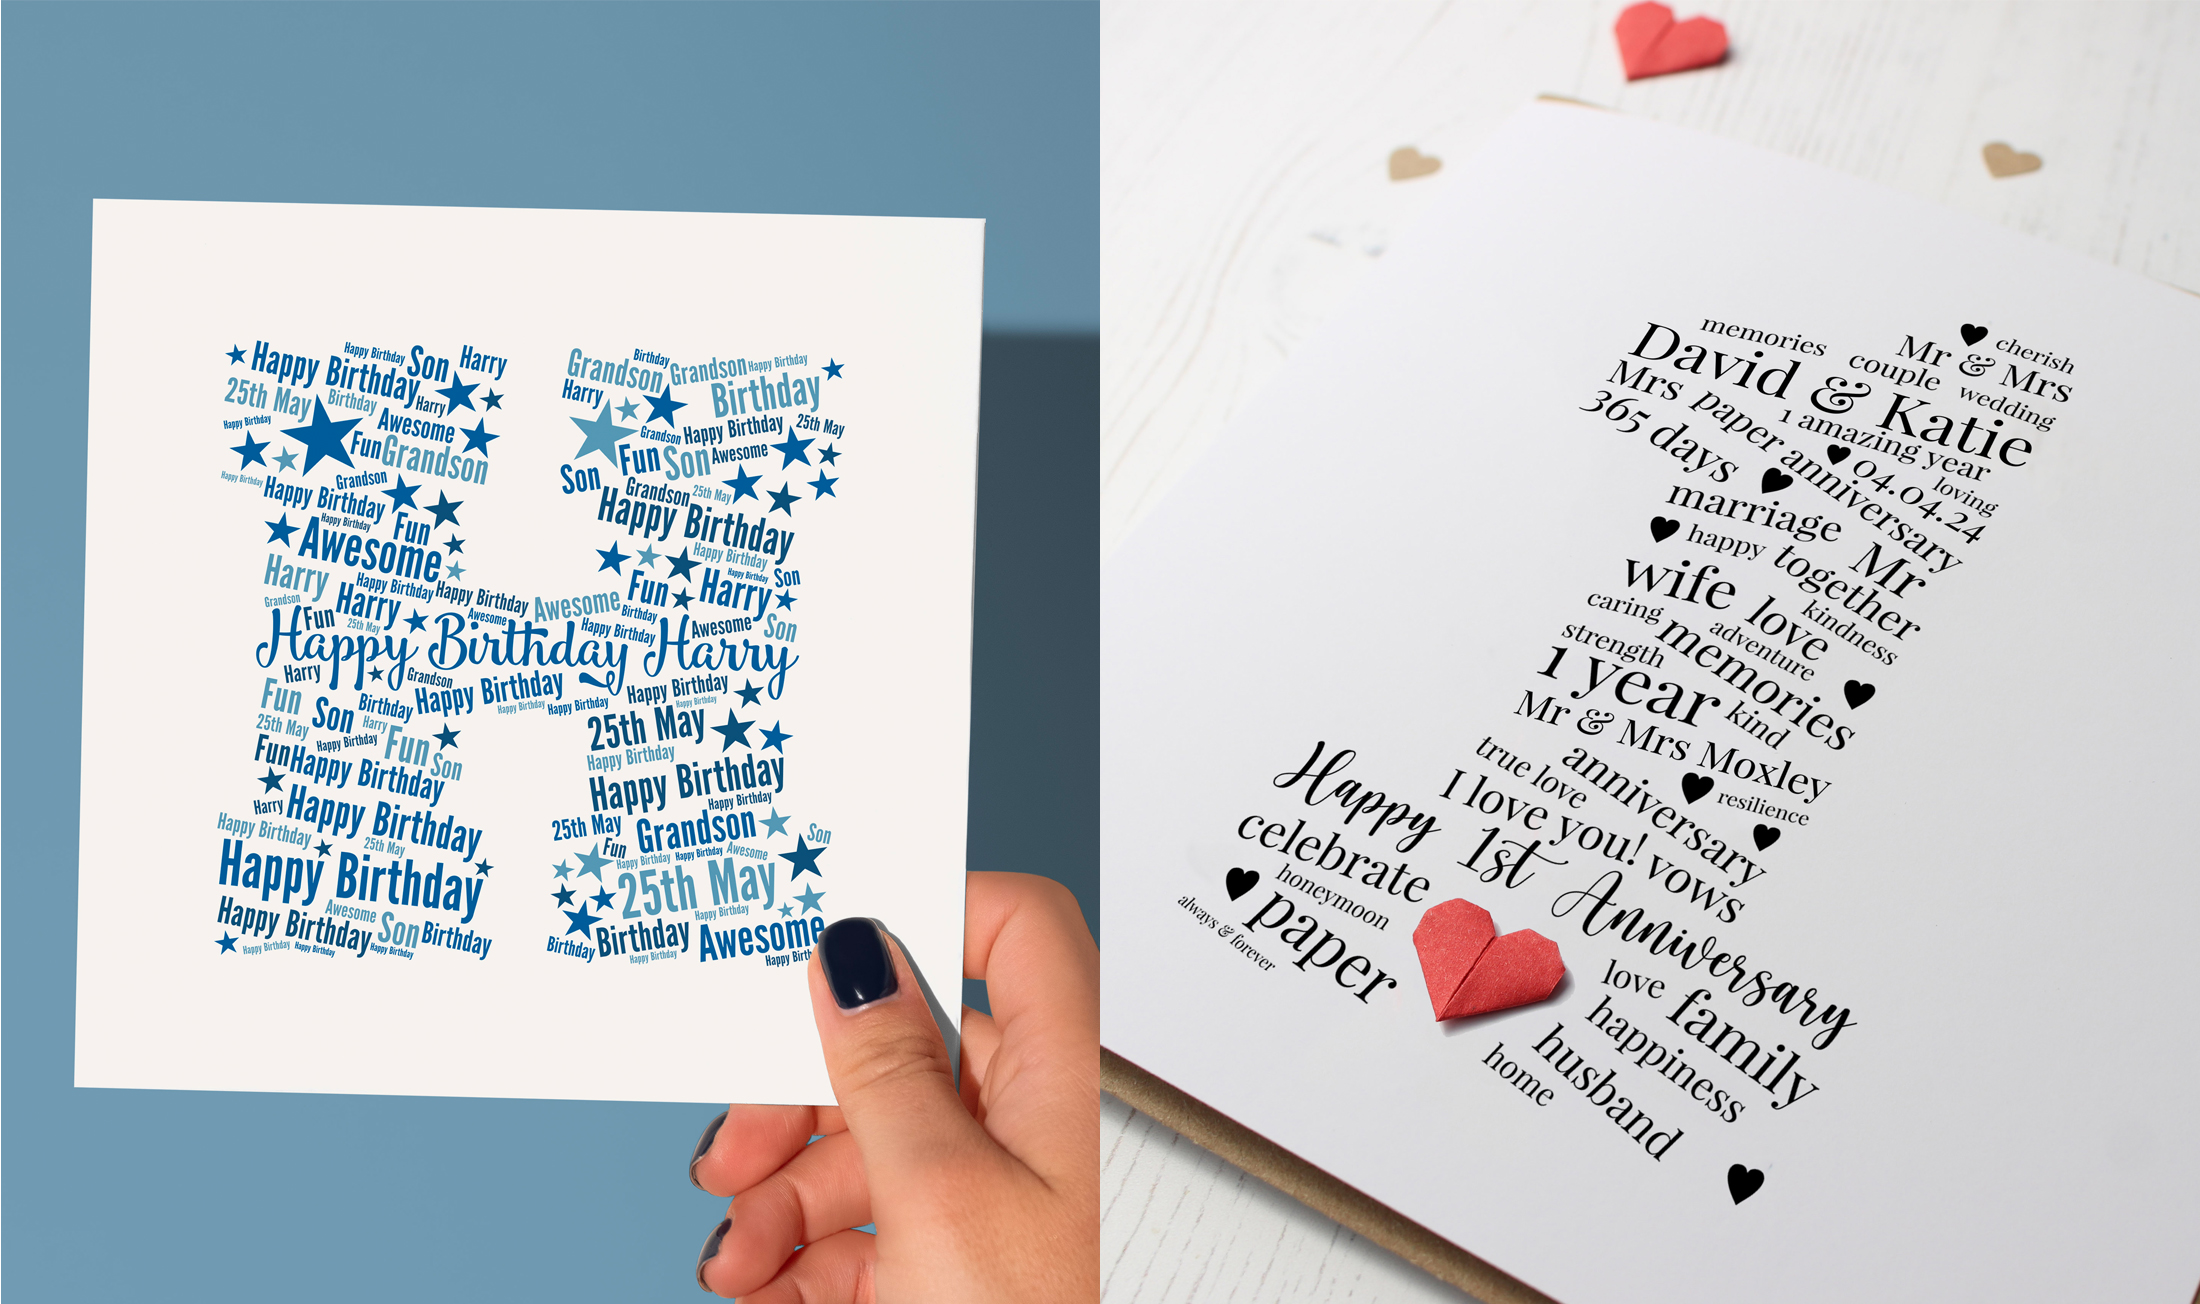 Happy Birthday
Happy Birthday
Son
Harry
25th May
Birthday
Harry
Happy Birthday
Awesome
Fun
Grandson
Happy Birthday
Grandson
Happy Birthday
Happy Birthday
Fun
Awesome
Harry
Happy Birthday
Happy Birthday
Awesome
Grandson
Fun
Harry
25th May
Awesome
Happy Birthday Harry
Harry
Grandson
Fun
Son
Birthday
Happy Birthday
Happy Birthday
Happy Birthday
25th May
Harry
Happy Birthday
Fun
Son
Fun
Happy Birthday
Harry
Happy Birthday
Happy Birthday
25th May
Happy Birthday
Happy Birthday
Awesome
Son
Birthday
Happy Birthday
Happy Birthday
Happy Birthday
Grandson
Birthday
Grandson
Happy Birthday
Harry
Birthday
Grandson
Happy Birthday
25th May
Son
Fun
Son
Awesome
Grandson
25th May
Happy Birthday
Happy Birthday
Happy Birthday
Son
Fun
Harry
Birthday
Happy Birthday
Awesome
Son
Happy Birthday
Happy Birthday
25th May
Happy Birthday
Happy Birthday
Happy Birthday
25th May
Grandson
Son
Fun
Happy Birthday
Happy Birthday
Awesome
25th May
Happy Birthday
Birthday
Birthday
Awesome
Happy Birthday
memories
Mr & Mrs
cherish
David & Katie
couple
wedding
Mrs
paper anniversary
1 amazing year
365 days
04.04.24
loving
marriage
Mr
happy
together
wife
love
kindness
caring
memories
adventure
strength
1 year
kind
Mr & Mrs Moxley
true love
anniversary
resilience
I love you!
vows
Happy 1st Anniversary
celebrate
honeymoon
paper
always & forever
love
family
happiness
husband
home